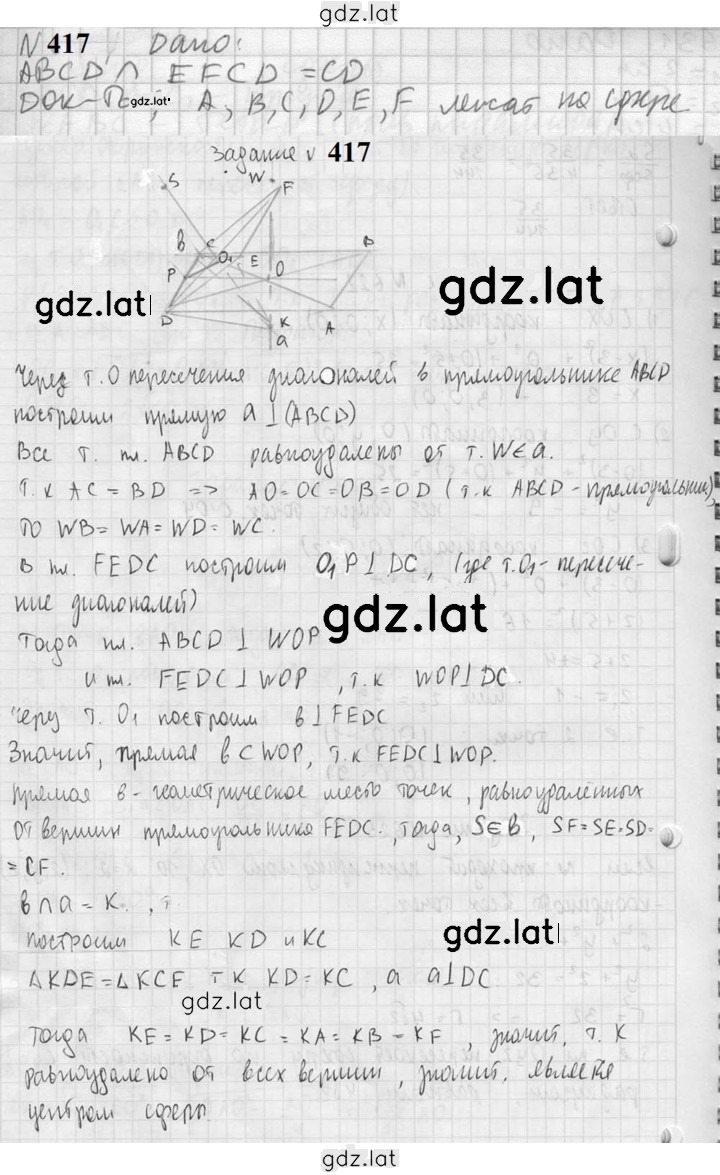 gdz.lat
N 417 Дано:
ABCD ∩ EFCD = CD
Док-ть: A, B, C, D, E, F лежат на сфере.
gdz.lat
задание N 417
S W F
B C O₁ E O B
P
D K A
a
gdz.lat
gdz.lat
Через т. O пересечения диагоналей в прямоугольнике ABCD
построим прямую a ⊥ (ABCD)
Все т. пл. ABCD равноудалены от т. W ∈ a.
Т.к AC = BD => AO = OC = OB = OD (т.к ABCD - прямоугольник),
то WB = WA = WD = WC.
В пл. FEDC построим O₁P ⊥ DC, (где т. O₁ - пересече-
ние диагоналей)
gdz.lat
Тогда пл. ABCD ⊥ WOP
и пл. FEDC ⊥ WOP, т.к WOP ⊥ DC.
Через т. O₁ построим в ⊥ FEDC
Значит, прямая в ⊂ WOP, т.к FEDC ⊥ WOP.
Прямая в - геометрическое место точек, равноудалённых
от вершин прямоугольника FEDC, тогда, S ∈ в, SF = SE = SD =
= CF.
в ∩ a = K, т.
построим KE KD и KC
gdz.lat
∆KDE = ∆KCF т.к KD = KC, a a ⊥ DC
gdz.lat
Тогда KE = KD = KC = KA = KB = KF, значит, т. K
равноудалено от всех вершин, значит, является
центром сферы.
gdz.lat